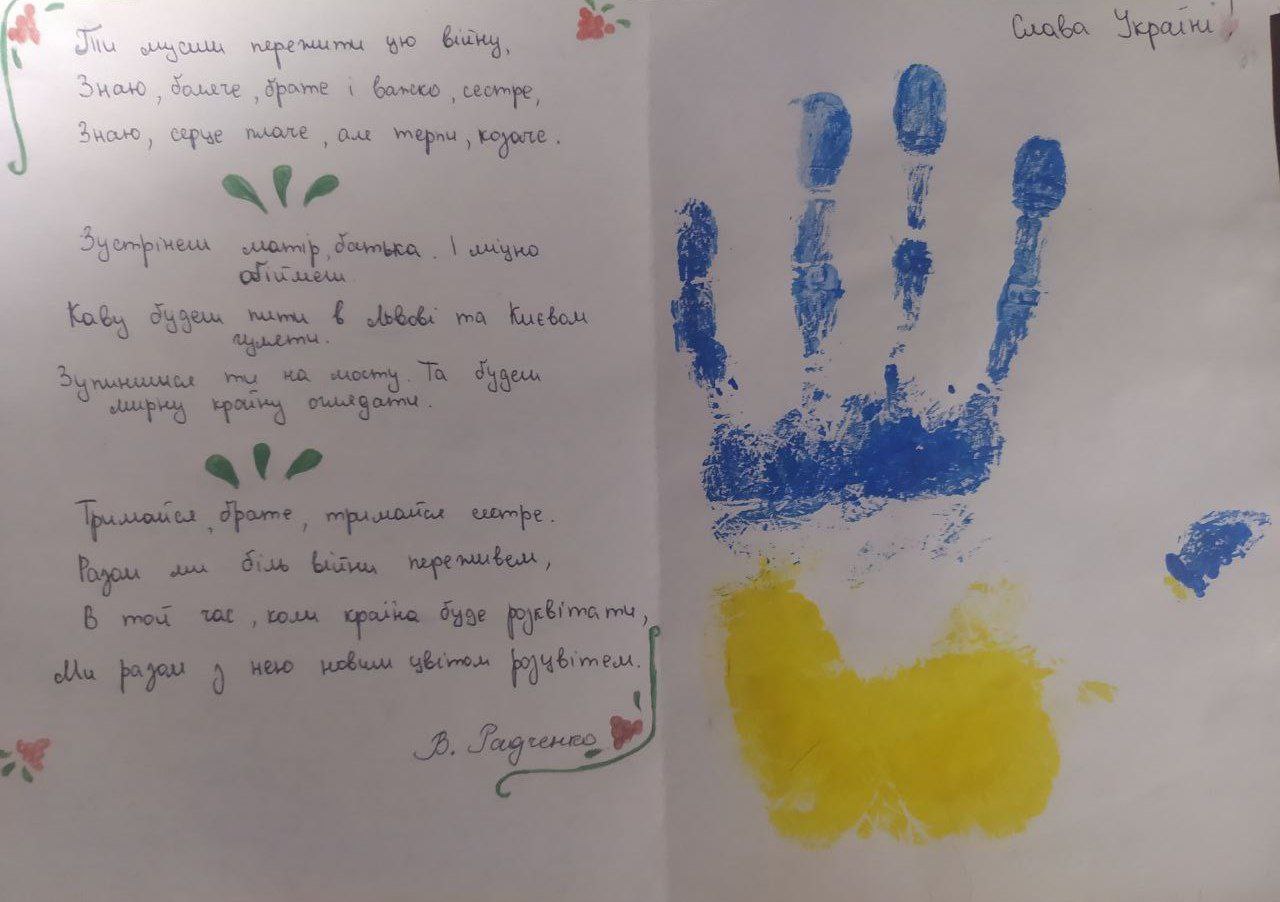 Ти мусиш пережити цю війну,
Знаю, боляче, брате і важко, сестре,
Знаю, серце плаче, але терпи, козаче.
Зустрінеш матір, батька. І міцно
обіймеш
Каву будеш пити в Львові та Києвом
гуляти.
Зупинишся ти на мосту. Та будеш
мирну країну оглядати.
Тримайся, брате, тримайся сестре.
Разом ми біль війни переживем,
В той час, коли країна буде розквітати,
Ми разом з нею новим цвітом розцвітем.
В. Радченко
Слава Україні!